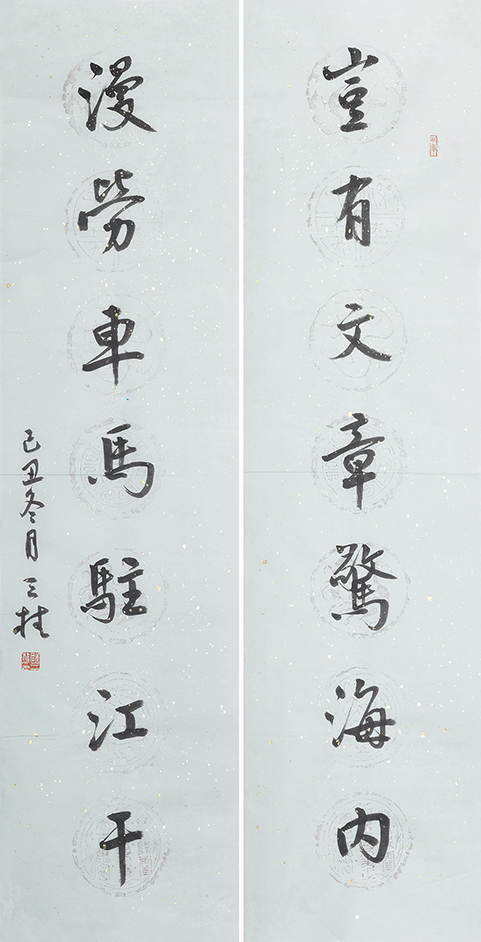 豈有文章驚海内
漫勞車馬駐江干
己丑冬月三桂